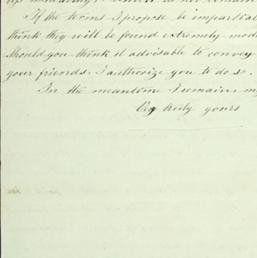 If the terms I propose be impartial
think they will be found extremely mod
should you think it advisable to convey
your friends. I authorize you to do so.
In the meantime I remain my
Very truly yours